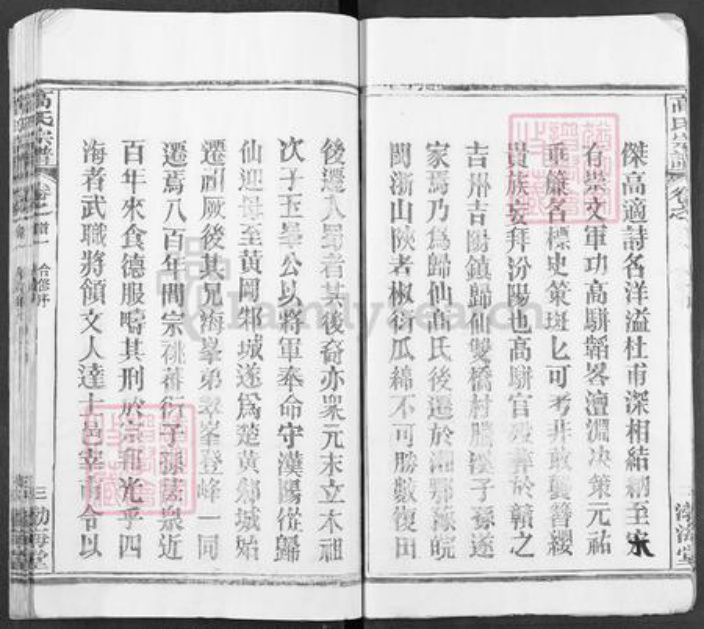 傑高適詩名洋溢杜甫深相結納至宋
有崇文軍功高駢韜畧澶淵决策元祐
垂簾名標史策斑匕可考非敢襲簪纓
貴族妄拜汾陽也高駢官歿葬於贛之
吉州吉陽鎮歸仙雙橋村勝溪子孫遂
家焉乃為歸仙髙氏後遷於湘鄂豫皖
閩浙山陝者椒衍瓜綿不可勝數復由
後遷入蜀者其後裔亦衆元末立木祖
次子玉峯公以將軍奉命守漢陽從歸
仙迎母至黄岡邾城遂為楚黄邾城始
遷祖厥後其兄海峯弟翠峯登峰一同
遷焉八百年間宗祧蕃衍子孫蕃衆近
百年來食德服疇其刑於宗和光乎四
海者武職將領文人達士邑宰市令以
高氏宗譜 卷之首
三 渤海堂
FamilySearch